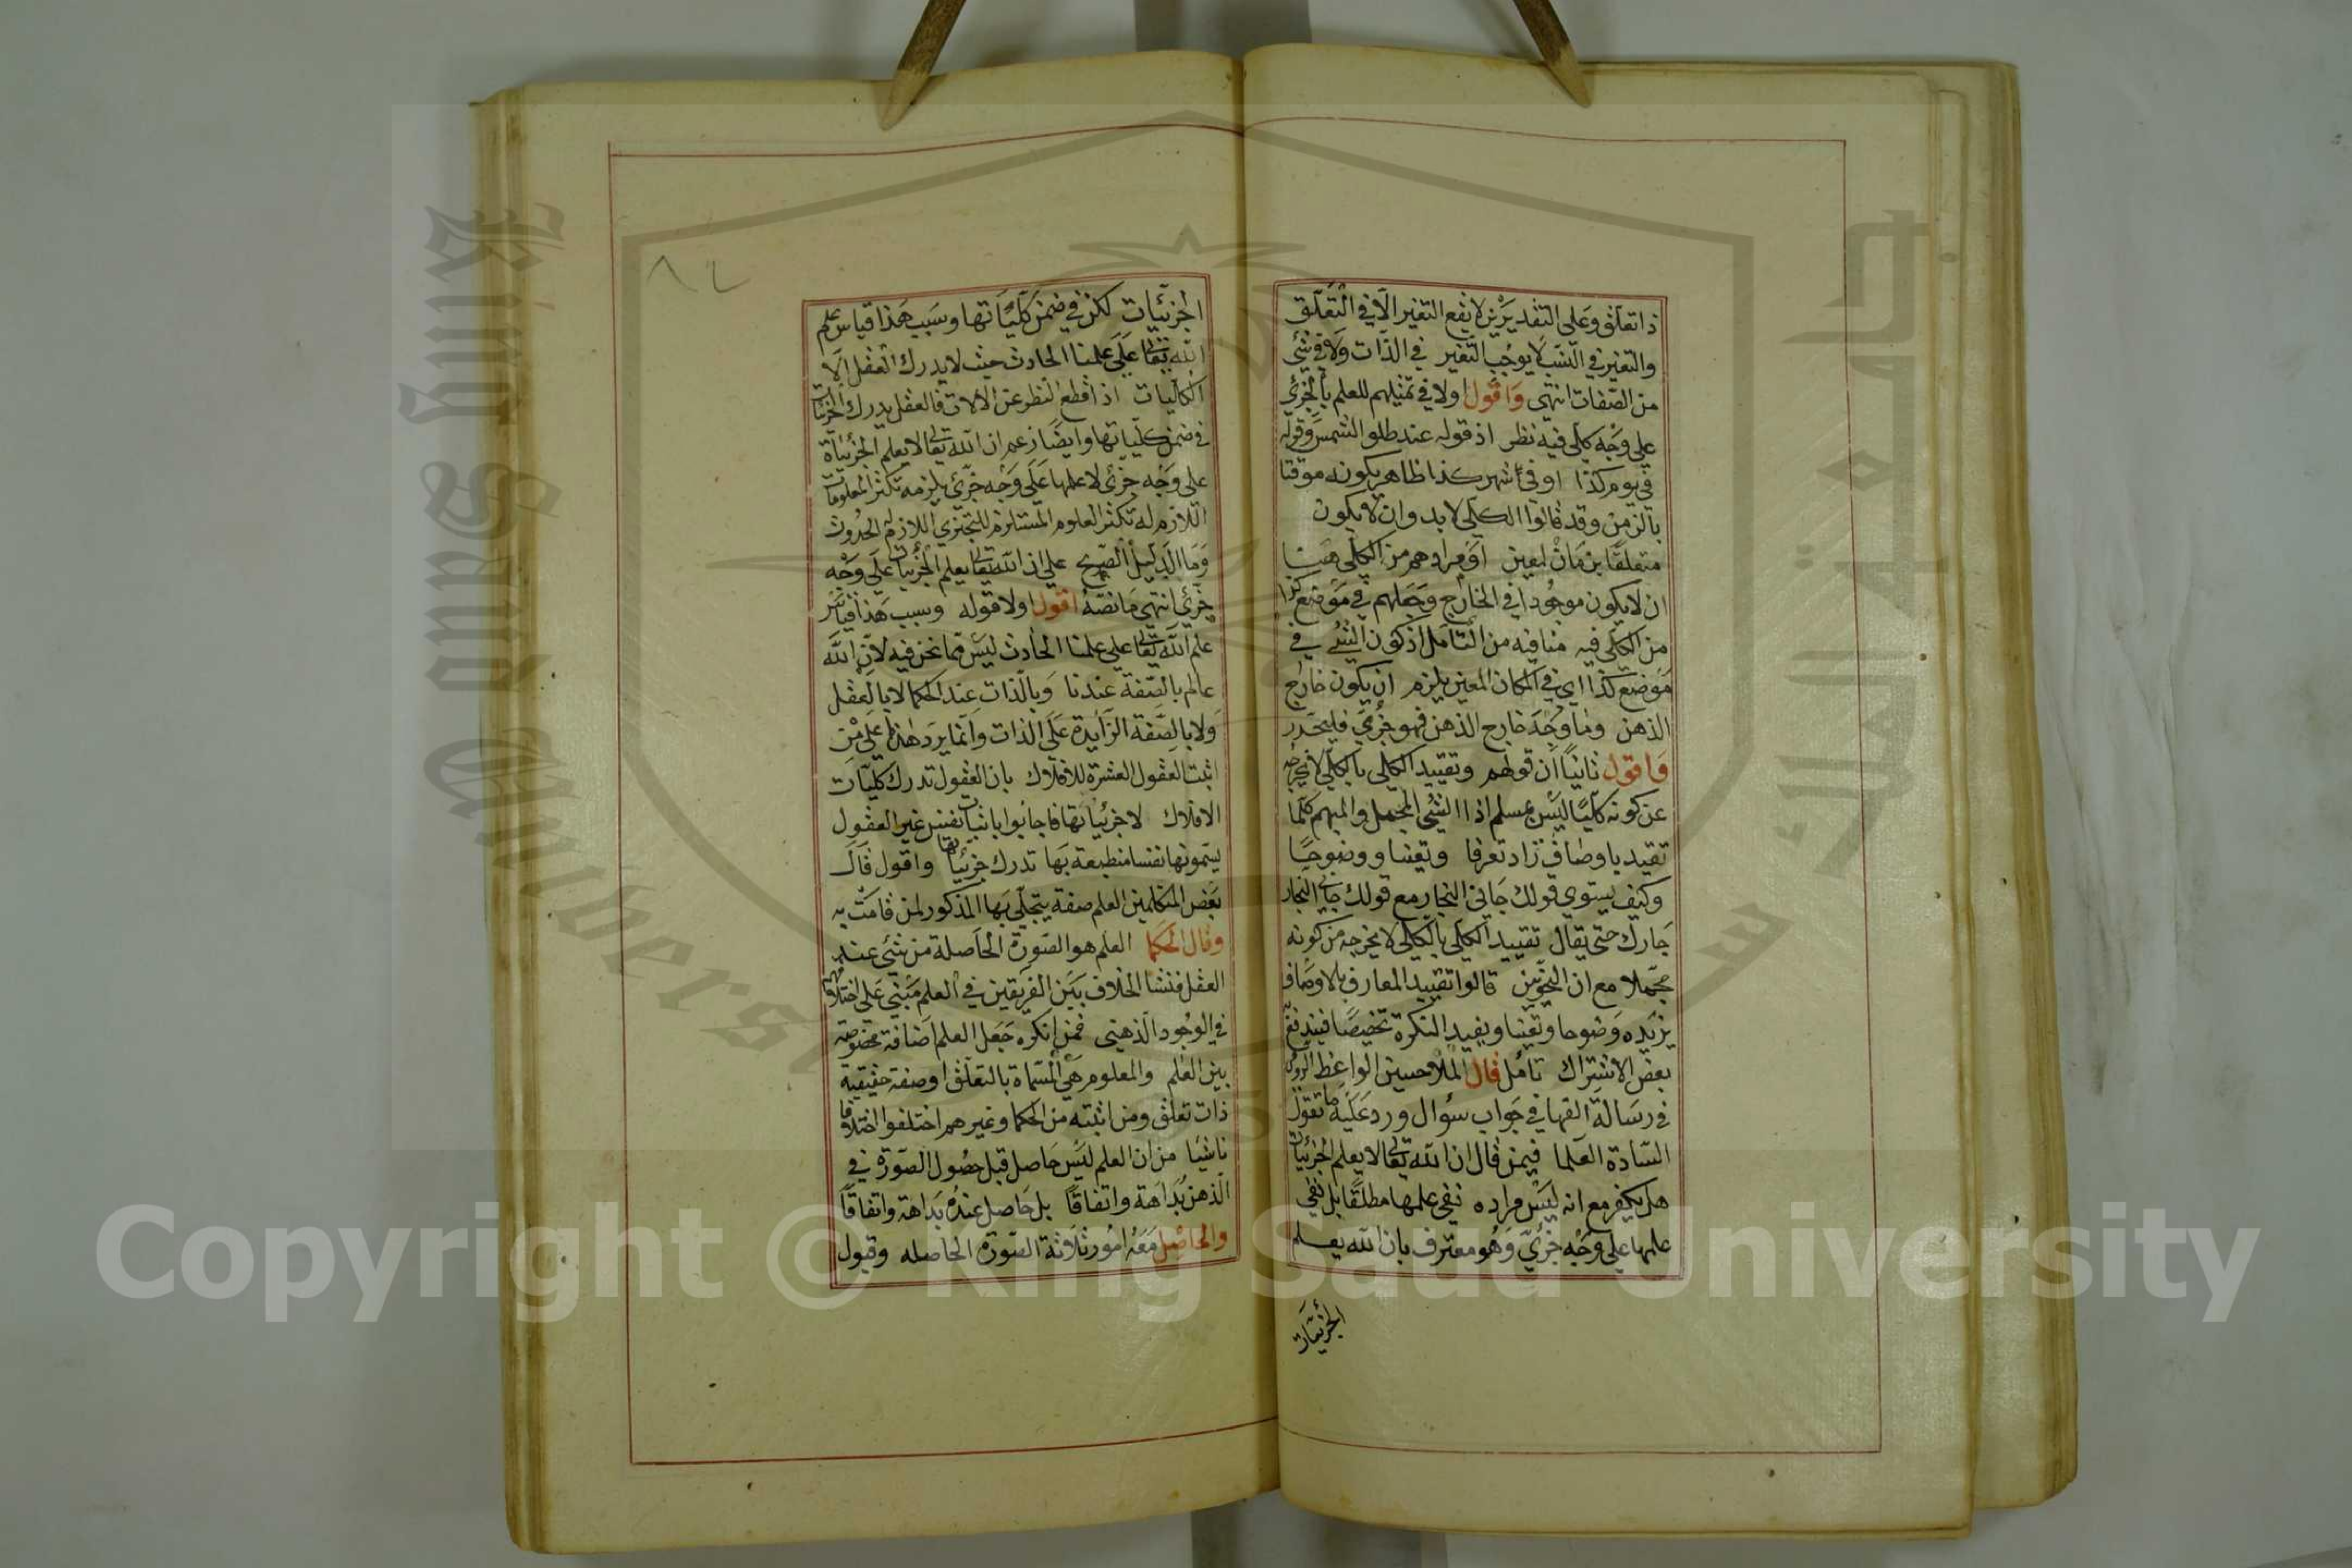 ذا تعلق وعلى التقديرين لا يقع التغير الا في التعلق
والتغير في النسب لا يوجب التغير في الذات ولا في شئ
من الصفات انتهى واقول اولا في تمثيلهم للعلم بالجزئ
على وجه كلى فيه نظر اذ قوله عند طلو الشمس وقوله
في يوم كذا او في اشهر كذا ظاهر بكونه موقتا
بالزمن وقد قالوا الكلى لا بد وان لا يكون
متعلقا بزمان لمعين او مرادهم من الكلى هنا
ان لا يكون موجودا في الخارج وجعلهم في موضع كذا
من الكلى فيه منافيه من التامل اذ كون الشئ في
موضع كذا اى في المكان المعين يلزم ان يكون خارج
الذهن وما وجد خارج الذهن فهو جزئ فليحذر
واقول ثانيا ان قولهم وتقييد الكلى بالكلى لا يخرجه
عن كونه كليا ليس بمسلم اذا الشئ المجمل والمبهم كلما
تقيد باوصاف زاد تعرفا وتعينا ووضوحا
وكيف يستوي قولك جاني النجار مع قولك جاني النجار
جارك حتى يقال تقييد الكلى بالكلى لا يخرجه من كونه
مجملا مع ان النحويين قالوا تقييد المعارف بالاوصاف
يزيده وضوحا وتعينا ويفيد النكرة تخصيصا فيندفع
بعض الاشتراك تامل قال الملا حسين الواعظ الرومى
في رسالة القها في جواب سؤال ورد عليه ما تقول
السادة العلما فيمن قال ان الله تعالى لا يعلم الجزئيات
هل يكفر مع انه ليس مراده نفي علمها مطلقا بل نفي
علمها على وجه جزئي وهو معترف بان الله يعلم
الجزئيات
٨٢
الجزئيات لكن في ضمن كلياتها وسبب هذا قياس علم
الله تعالى على علمنا الحادث حيث لا يدرك العقل الا
الكليات اذا قطع النظر عن الالات فالعقل يدرك الجزئيات
في ضمن كلياتها وايضا زعم ان الله تعالى لا يعلم الجزئياة
على وجه جزئى لا علمها على وجه جزئي يلزمه تكثر المعلومات
اللازم له تكثر العلوم المستلزم للتجزي اللازم له الحدوث
وما الدليل الصريح على ان الله تعالى يعلم الجزئيات على وجه
جزئي انتهى ما نصه اقول اولا قوله وسبب هذا قياس
علم الله تعالى على علمنا الحادث ليس مما نحن فيه لان الله
عالم بالصفة عندنا وبالذات عند الحكما لا بالعقل
ولا بالصفة الزايدة على الذات وانما يرد هذا على من
اثبت العقول العشرة للافلاك بان العقول تدرك كليات
الافلاك لا جزئياتها فاجابوا باثبات نفس غير العقول
يسمونها نفسا منطبعة بها تدرك جزئياتها واقول قال
بعض المتكلمين العلم صفة يتجلى بها المذكور لمن قامت به
وقال الحكما العلم هو الصورة الحاصلة من شئ عند
العقل فنشا الخلاف بين الفريقين في العلم مبني على اختلافهم
في الوجود الذهني فمن انكره جعل العلم اضافة مخصوصة
بين العلم والمعلوم هي المسماة بالتعلق او صفة حقيقية
ذات تعلق ومن اثبته من الحكما وغيرهم اختلفوا اختلافا
ناشيا من ان العلم ليس حاصل قبل حصول الصورة في
الذهن بداهة واتفاقا بل حاصل عنده بداهة واتفاقا
والحاصل معه امور ثلاثة الصورة الحاصله وقبول
King Saud University
Copyright © King Saud University